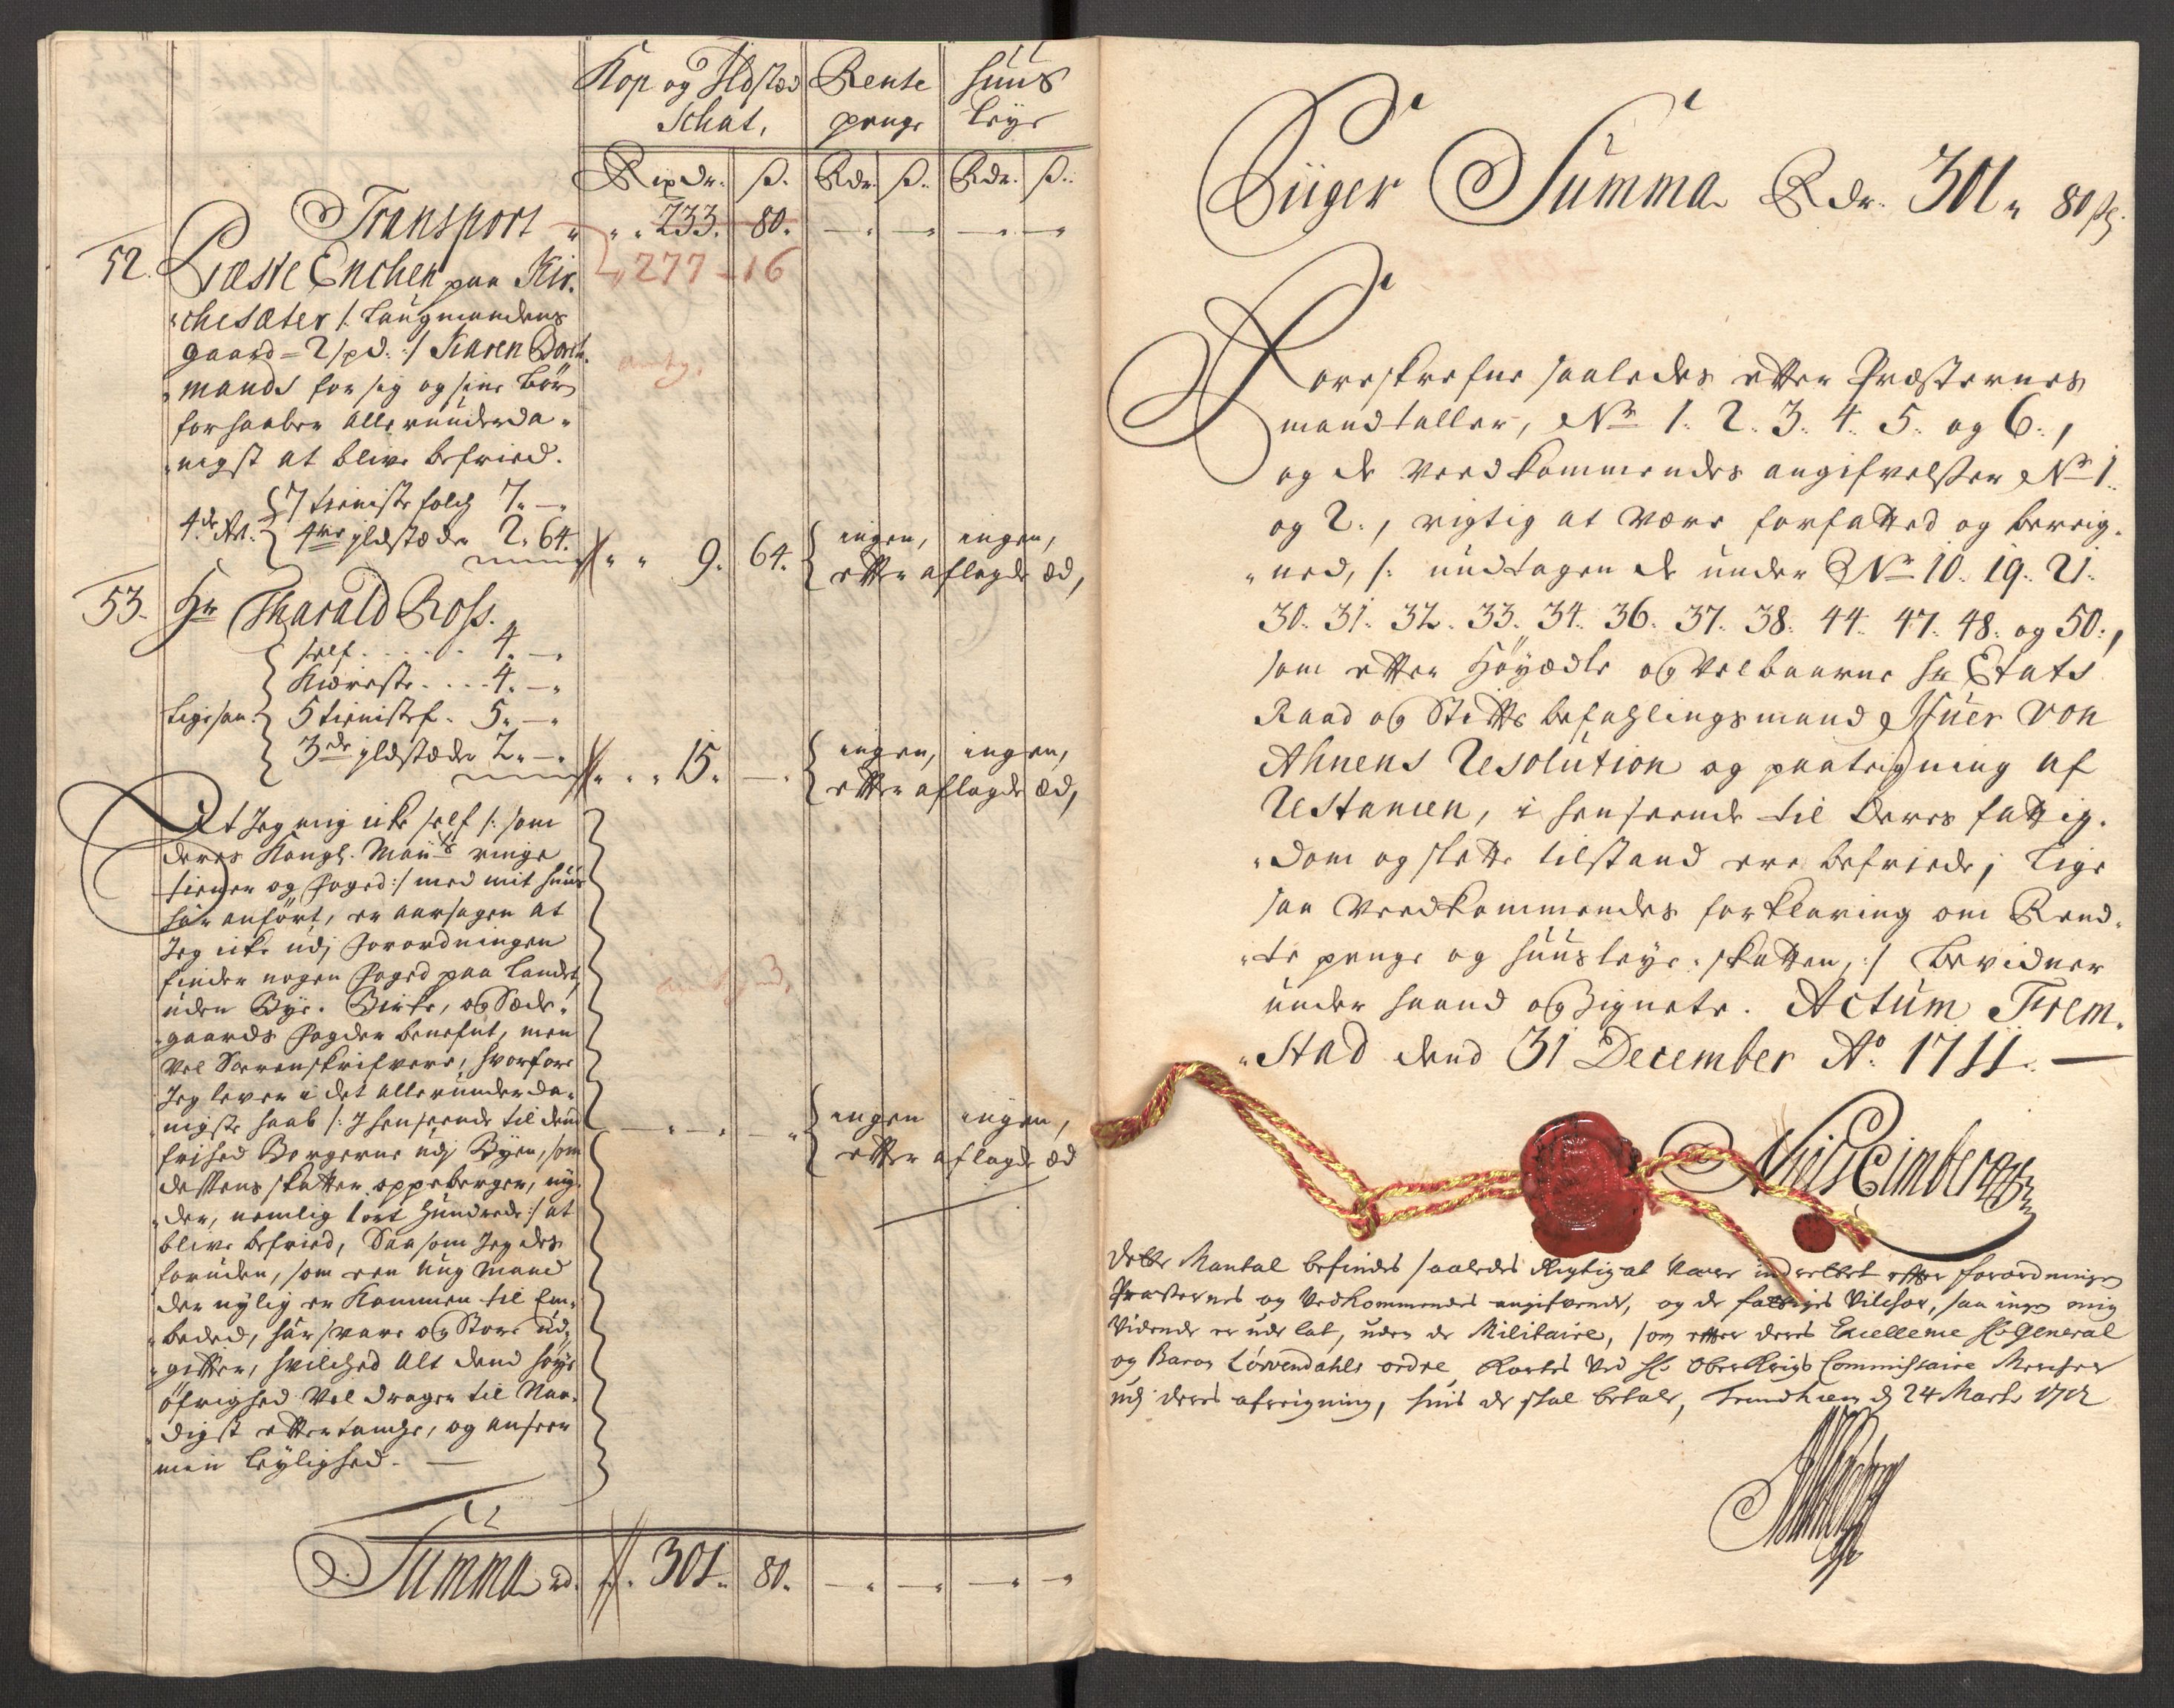 Kop og Ildsted Rente Huus
Schat, penge Leye
Rixdr. ß. Rdr. ß. Rdr. ß.
Transport „ „ 233. 80. — — — —
277 - 16
52. Præste Enchen paa Kir-
chesæter /: Laugmandens
gaard = 2 spd. :/ Karen
mands for sig og sine Børn
forhaaber allerunderda-
nigst at blive befried.
7 tieniste folch 7. —
4de Art. 4re Ildstæder 2. 64.
„ „ 9. 64. ingen, ingen,
efter aflagde æd,
53. Hr Tharald Ross.
self . . . . . 4. —
Kiæreste . . . . 4. —
Ligesaa. 5 tienistef. 5. —
3de Ildstæder 2. —
„ „ 15. — ingen, ingen,
efter aflagde æd,
At Jeg mig icke self /: som
deres Kongl. Maÿts ringe
tiener og foged :/ med mit huus
har anført, er aarsagen at
Jeg icke udj forordningen
finder nogen foged paa Landet,
uden Bye- Birke, og Sæde-
gaards fogder benefnt, men
vel Sorenskrifvere, hvorfore
Jeg lever i det allerunderda-
nigste haab /: J henseende til dend
frihed Borgerne udj Byen, som
dessens skatter oppeberger, ny-
der, nemlig 1ort hundrede :/ at
blive befried, Saasom Jeg des
foruden, som een ung Mand
der nylig er kommen til Em-
beded, har svare og store ud-
gifter, hvilched alt dend høye
øfrighed vel drager til Naa-
digst eftertanche, og anseer
min leylighed. —
— — — ingen ingen,
efter aflagde æd
Summa „ 301. 80. — — — —
Siiger Summa Rdr. 301„ 80 ß.
Foreskrefne saaledes efter Præsternes
mandtaller, No 1. 2. 3. 4. 5. og 6.,
og de veedkommendes angifvelser No 1.
og 2., rigtig at være forfatted og bereig-
ned, /: undtagen de under No 10. 19. 21.
30. 31. 32. 33. 34. 36. 37. 38. 44. 47. 48. og 50.,
som efter Høyædle og velbaarne Hr Etats
Raad og Stiftsbefahlingsmand Jfuer von
Ahnens Resolution og paateigning af
Restancen, i henseende til deres fattig-
dom og slette tilstand ere befriede; Lige
saa veedkommendes forklaring om Rend-
te penge og huusleye-skatten, :/ Bevidner
under haand og Signete. Actum Trem-
Stad dend 31 December Ao 1711. —
Niels Eimberg
Dette Mantal befindes saaledes Rigtig at være indrettet efter forordningen
Præsternes og Vedkommendes angifvende, og de fattiges Vilchor, saa ingen mig
vidende er ude lat, uden de Militaire, som efter deres Excellence Hr General
og Baron Løvendahls ordre, Kortes ved Hr Ober Krigs Commissaire
udj deres afreigning, hvis de skal betale, Trundhiem d 24 Marts 1712